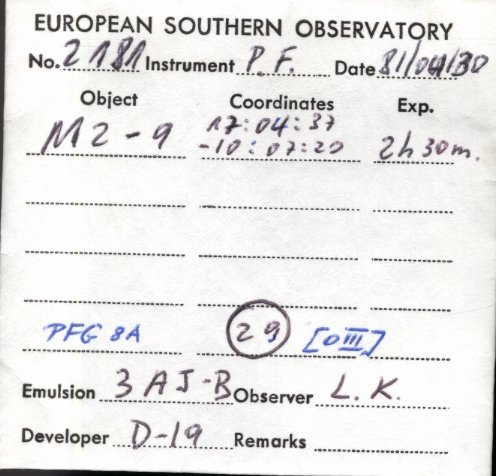 EUROPEAN SOUTHERN OBSERVATORY
No. 2181 Instrument P.F. Date 81/04/30
Object Coordinates Exp.
M2-9 17:04:37 2h 30m.
-10:07:20
PFG 8A 29 [OIII]
Emulsion 3AJ-B Observer L.K.
Developer D-19 Remarks